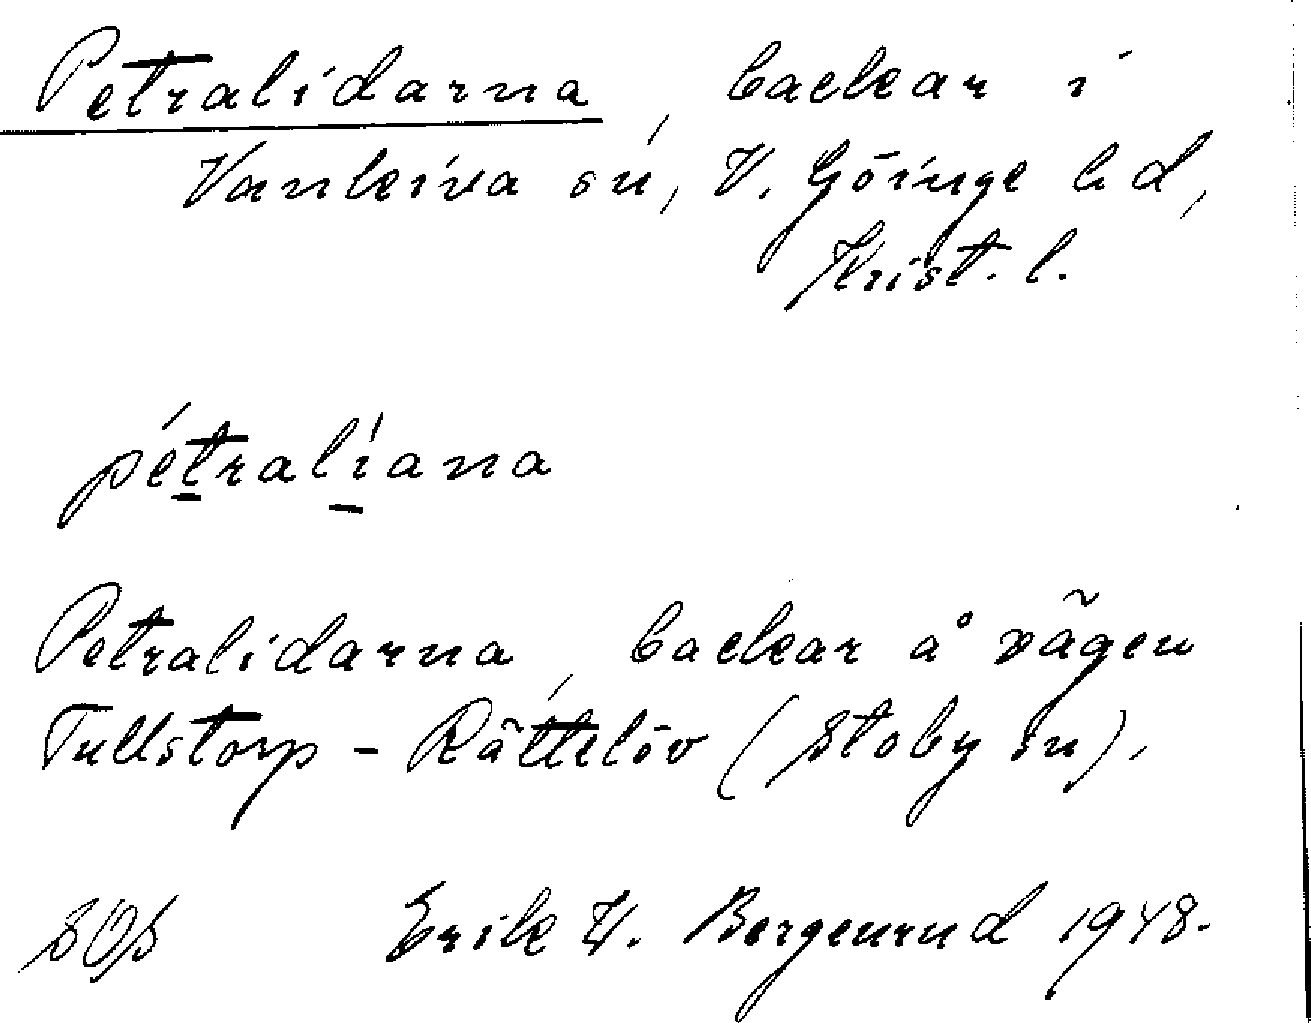 Petralidarna, backar i
Vankiva sn, V. Göinge hd,
Krist. l.
pétralíana
Petralidarna, backar å vägen
Tullstorp - Rättelöv (Stoby sn).
SOS Erik W. Bergenrud 1948.